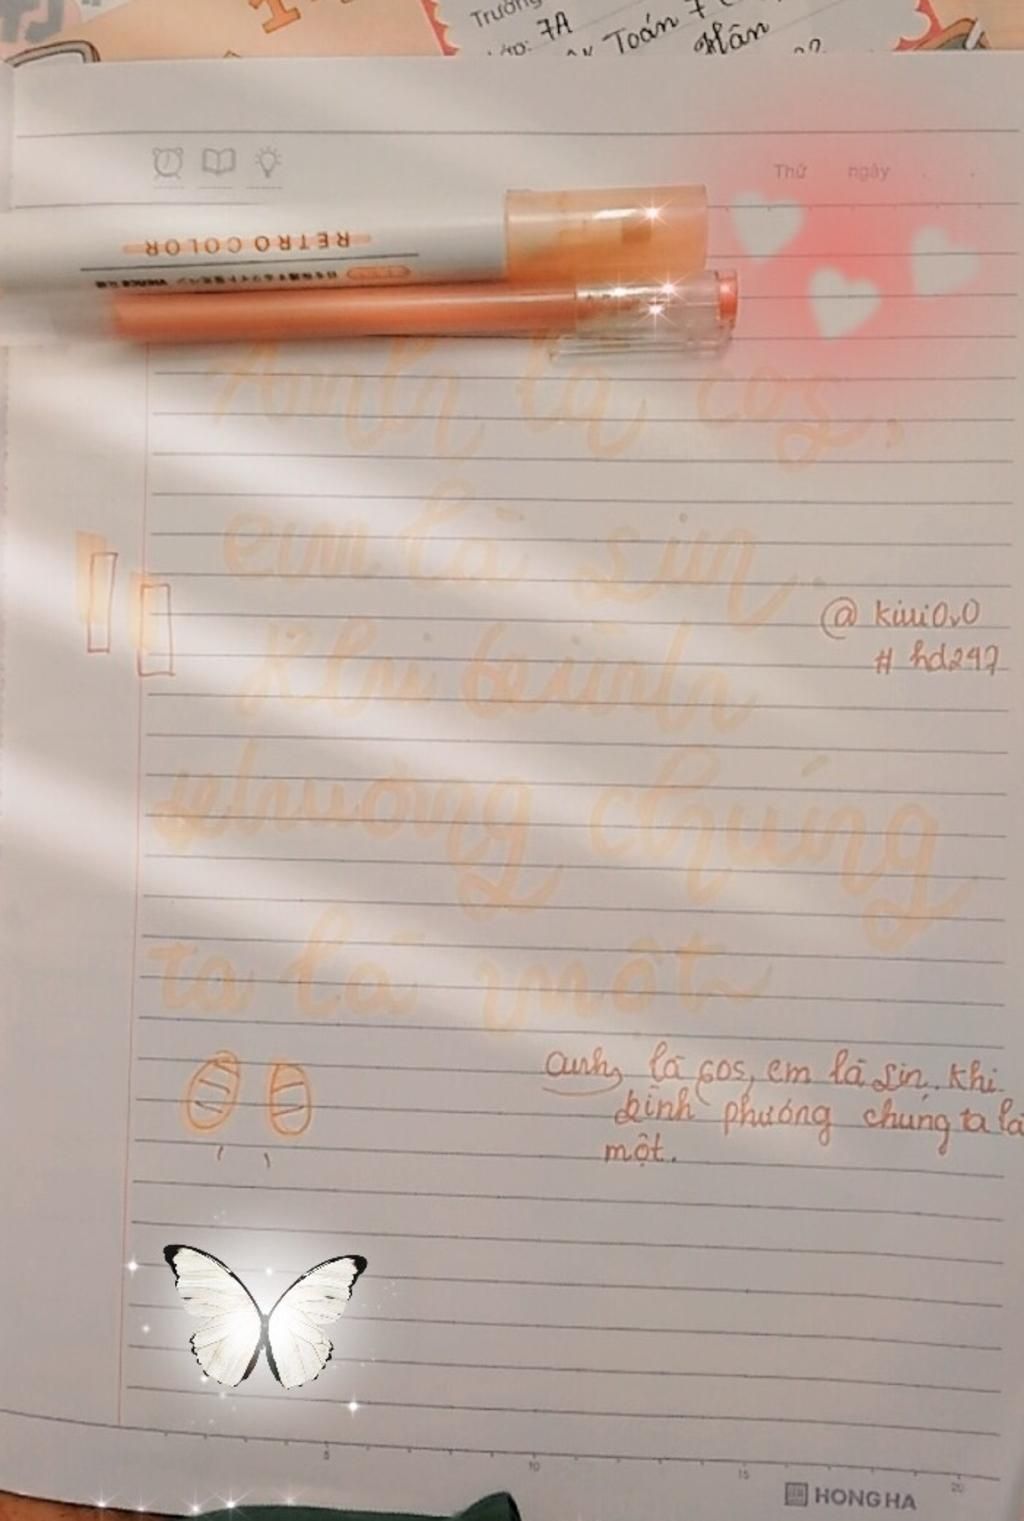 Trường
7A
Toán 7
Hân
Thứ ngày
RETRO COLOR
Anh là cos,
em là sin
khi bình
phương chúng
ta là một
@ kiui0v0
# hd247
anh là cos, em là sin. khi
bình phương chúng ta là
một.
5 10 15 20
HONG HA